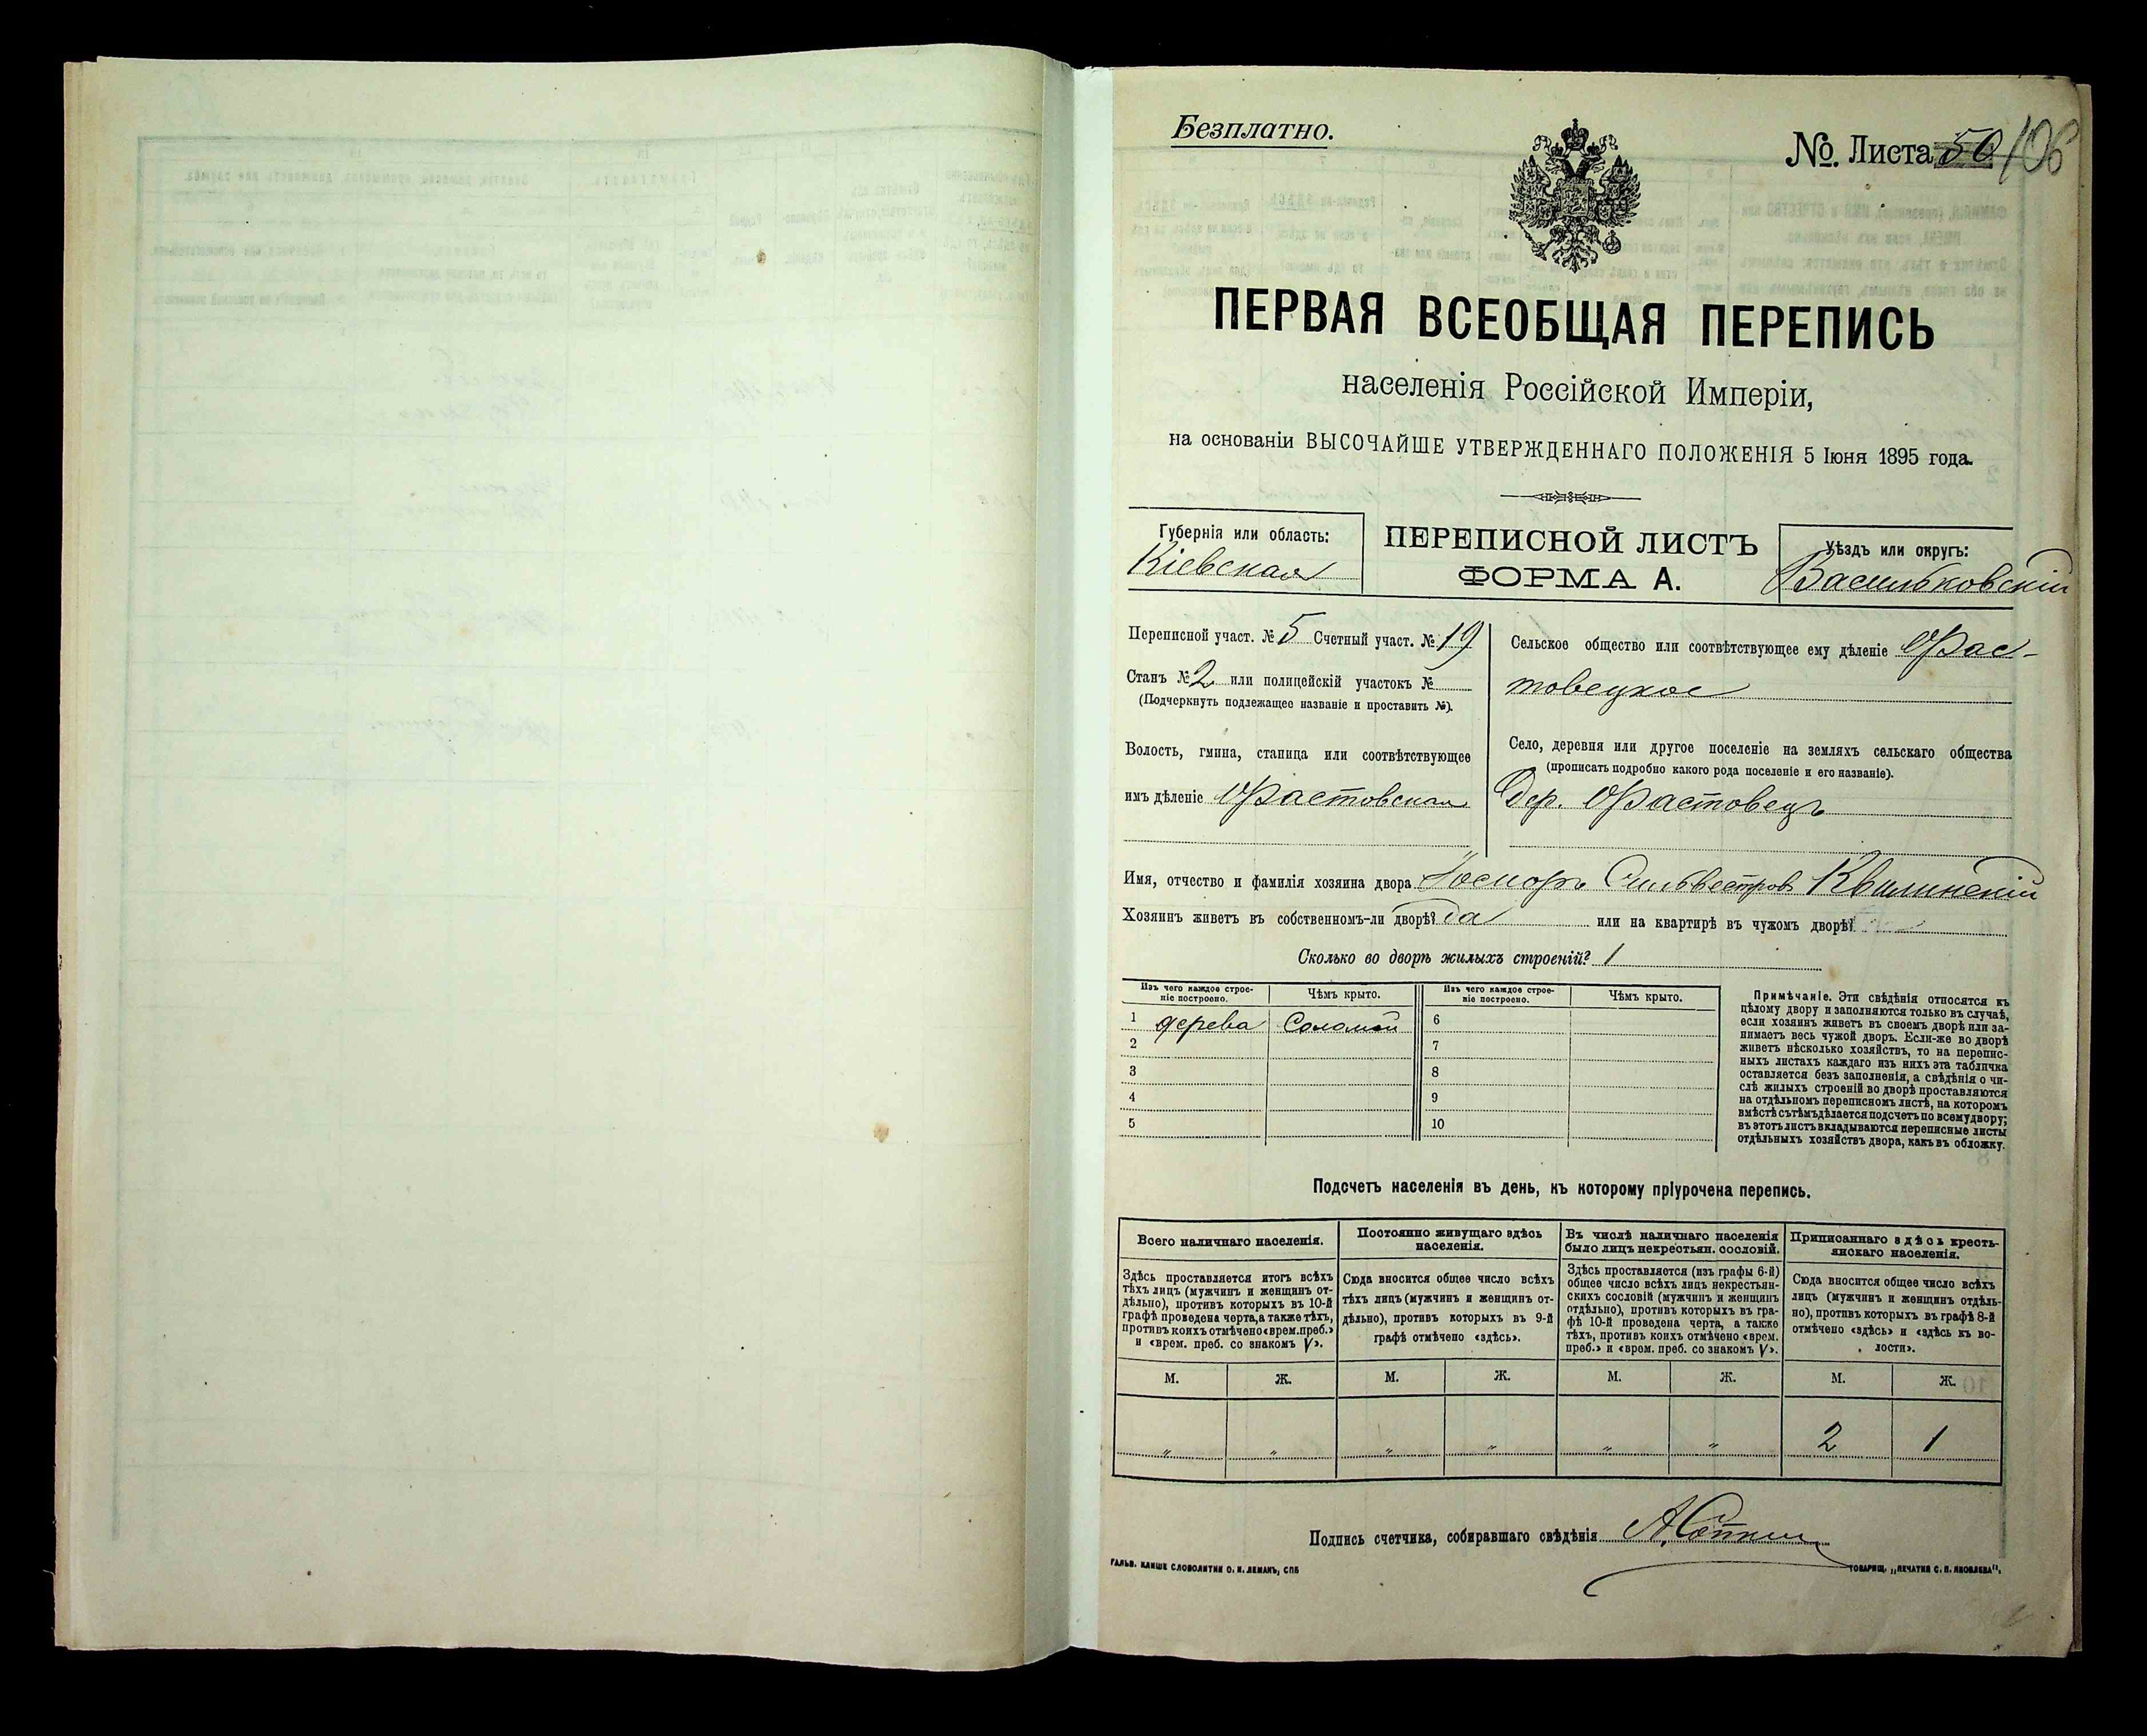 Безплатно.
№ Листа 50 106
ПЕРВАЯ ВСЕОБЩАЯ ПЕРЕПИСЬ
населенія Россійской Имперіи,
на основаніи ВЫСОЧАЙШЕ УТВЕРЖДЕННАГО ПОЛОЖЕНІЯ 5 Іюня 1895 года.
Губернія или область:
Кіевская
ПЕРЕПИСНОЙ ЛИСТЪ
ФОРМА А.
Уѣздъ или округъ:
Васильковскій
Переписной участ. № 5 Счетный участ. № 19
Станъ № 2 или полицейскій участокъ №
(Подчеркнуть подлежащее названіе и проставить №).
Волость, гмина, станица или соотвѣтствующее
имъ дѣленіе Фастовская
Сельское общество или соотвѣтствующее ему дѣленіе Фас-
товецкое
Село, деревня или другое поселеніе на земляхъ сельскаго общества
(прописать подробно какого рода поселеніе и его названіе).
Дер. Фастовецъ
Имя, отчество и фамилія хозяина двора Іосифъ Сильвестровъ Квилинскій
Хозяинъ живетъ въ собственномъ-ли дворѣ? да или на квартирѣ въ чужомъ дворѣ?
Сколько во дворѣ жилыхъ строеній? 1
Изъ чего каждое строе-
ніе построено.
Чѣмъ крыто.
1 дерева Соломой
2
3
4
5
Изъ чего каждое строе-
ніе построено.
Чѣмъ крыто.
6
7
8
9
10
Примѣчаніе. Эти свѣдѣнія относятся къ
цѣлому двору и заполняются только въ случаѣ,
если хозяинъ живетъ въ своемъ дворѣ или за-
нимаетъ весь чужой дворъ. Если-же во дворѣ
живетъ нѣсколько хозяйствъ, то на перепис-
ныхъ листахъ каждаго изъ нихъ эта табличка
оставляется безъ заполненія, а свѣдѣнія о чи-
слѣ жилыхъ строеній во дворѣ проставляются
на отдѣльномъ переписномъ листѣ, на которомъ
вмѣстѣ съ тѣмъ дѣлается подсчетъ по всему двору;
въ этотъ листъ вкладываются переписные листы
отдѣльныхъ хозяйствъ двора, какъ въ обложку.
Подсчетъ населенія въ день, къ которому пріурочена перепись.
Всего наличнаго населенія.
Здѣсь проставляется итогъ всѣхъ
тѣхъ лицъ (мужчинъ и женщинъ от-
дѣльно), противъ которыхъ въ 10-й
графѣ проведена черта, а также тѣхъ,
противъ коихъ отмѣчено «врем. преб.»
и «врем. преб. со знакомъ V».
М. Ж.
" "
Постоянно живущаго здѣсь
населенія.
Сюда вносится общее число всѣхъ
тѣхъ лицъ (мужчинъ и женщинъ от-
дѣльно), противъ которыхъ въ 9-й
графѣ отмѣчено «здѣсь».
М. Ж.
" "
Въ числѣ наличнаго населенія
было лицъ некрестьян. сословій.
Здѣсь проставляется (изъ графы 6-й)
общее число всѣхъ лицъ некрестьян-
скихъ сословій (мужчинъ и женщинъ
отдѣльно), противъ которыхъ въ гра-
фѣ 10-й проведена черта, а также
тѣхъ, противъ коихъ отмѣчено «врем.
преб.» и «врем. преб. со знакомъ V».
М. Ж.
" "
Приписаннаго здѣсь кресть-
янскаго населенія.
Сюда вносится общее число всѣхъ
лицъ (мужчинъ и женщинъ отдѣль-
но), противъ которыхъ въ графѣ 8-й
отмѣчено «здѣсь» и «здѣсь къ во-
лости».
М. Ж.
2 1
Подпись счетчика, собиравшаго свѣдѣнія
ГАЛЬВ. КЛИШЕ СЛОВОЛИТНИ О. И. ЛЕМАНЪ, СПБ
ТОВАРИЩ. „ПЕЧАТНЯ С. П. ЯКОВЛЕВА".